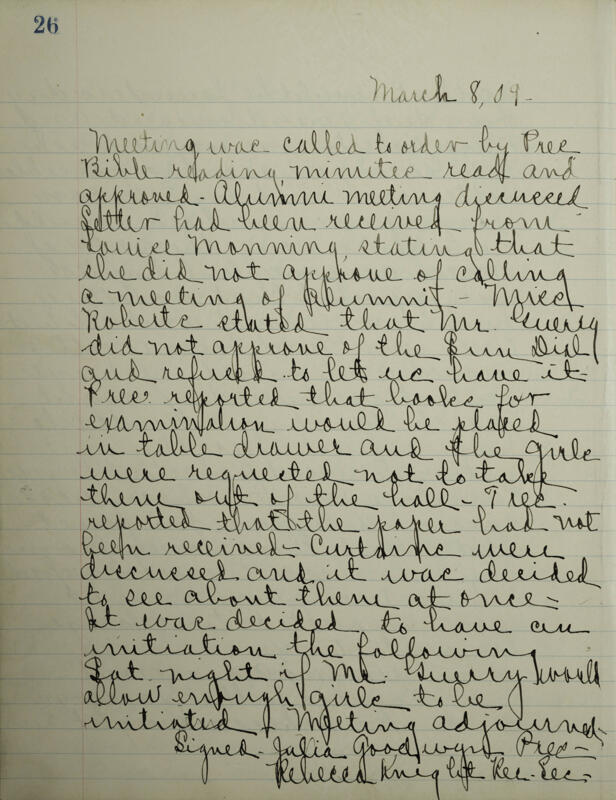 26
March 8, 09-
Meeting was called to order by Pres
Bible reading, minutes read and
approved- Alumni meeting discussed
Letter had been received from
Louise Monning, stating that
she did not approve of calling
a meeting of Alumni- Miss
Roberts stated that Mr. Guerry
did not approve of the Sun Dial
and refused to let us have it-
Pres. reported that books for
examination would be placed
in table drawer and the girls
were requested not to take
them out of the hall- Tres.
reported that the paper had not
been received- Curtains were
discussed and it was decided
to see about them at once-
It was decided to have an
initiation the following
Sat. night if Mr. Guerry would
allow enough girls to be
initiated. Meeting adjourned-
Signed- Julia Goodwyn Pres-
Rebecca Knight Rec. Sec-